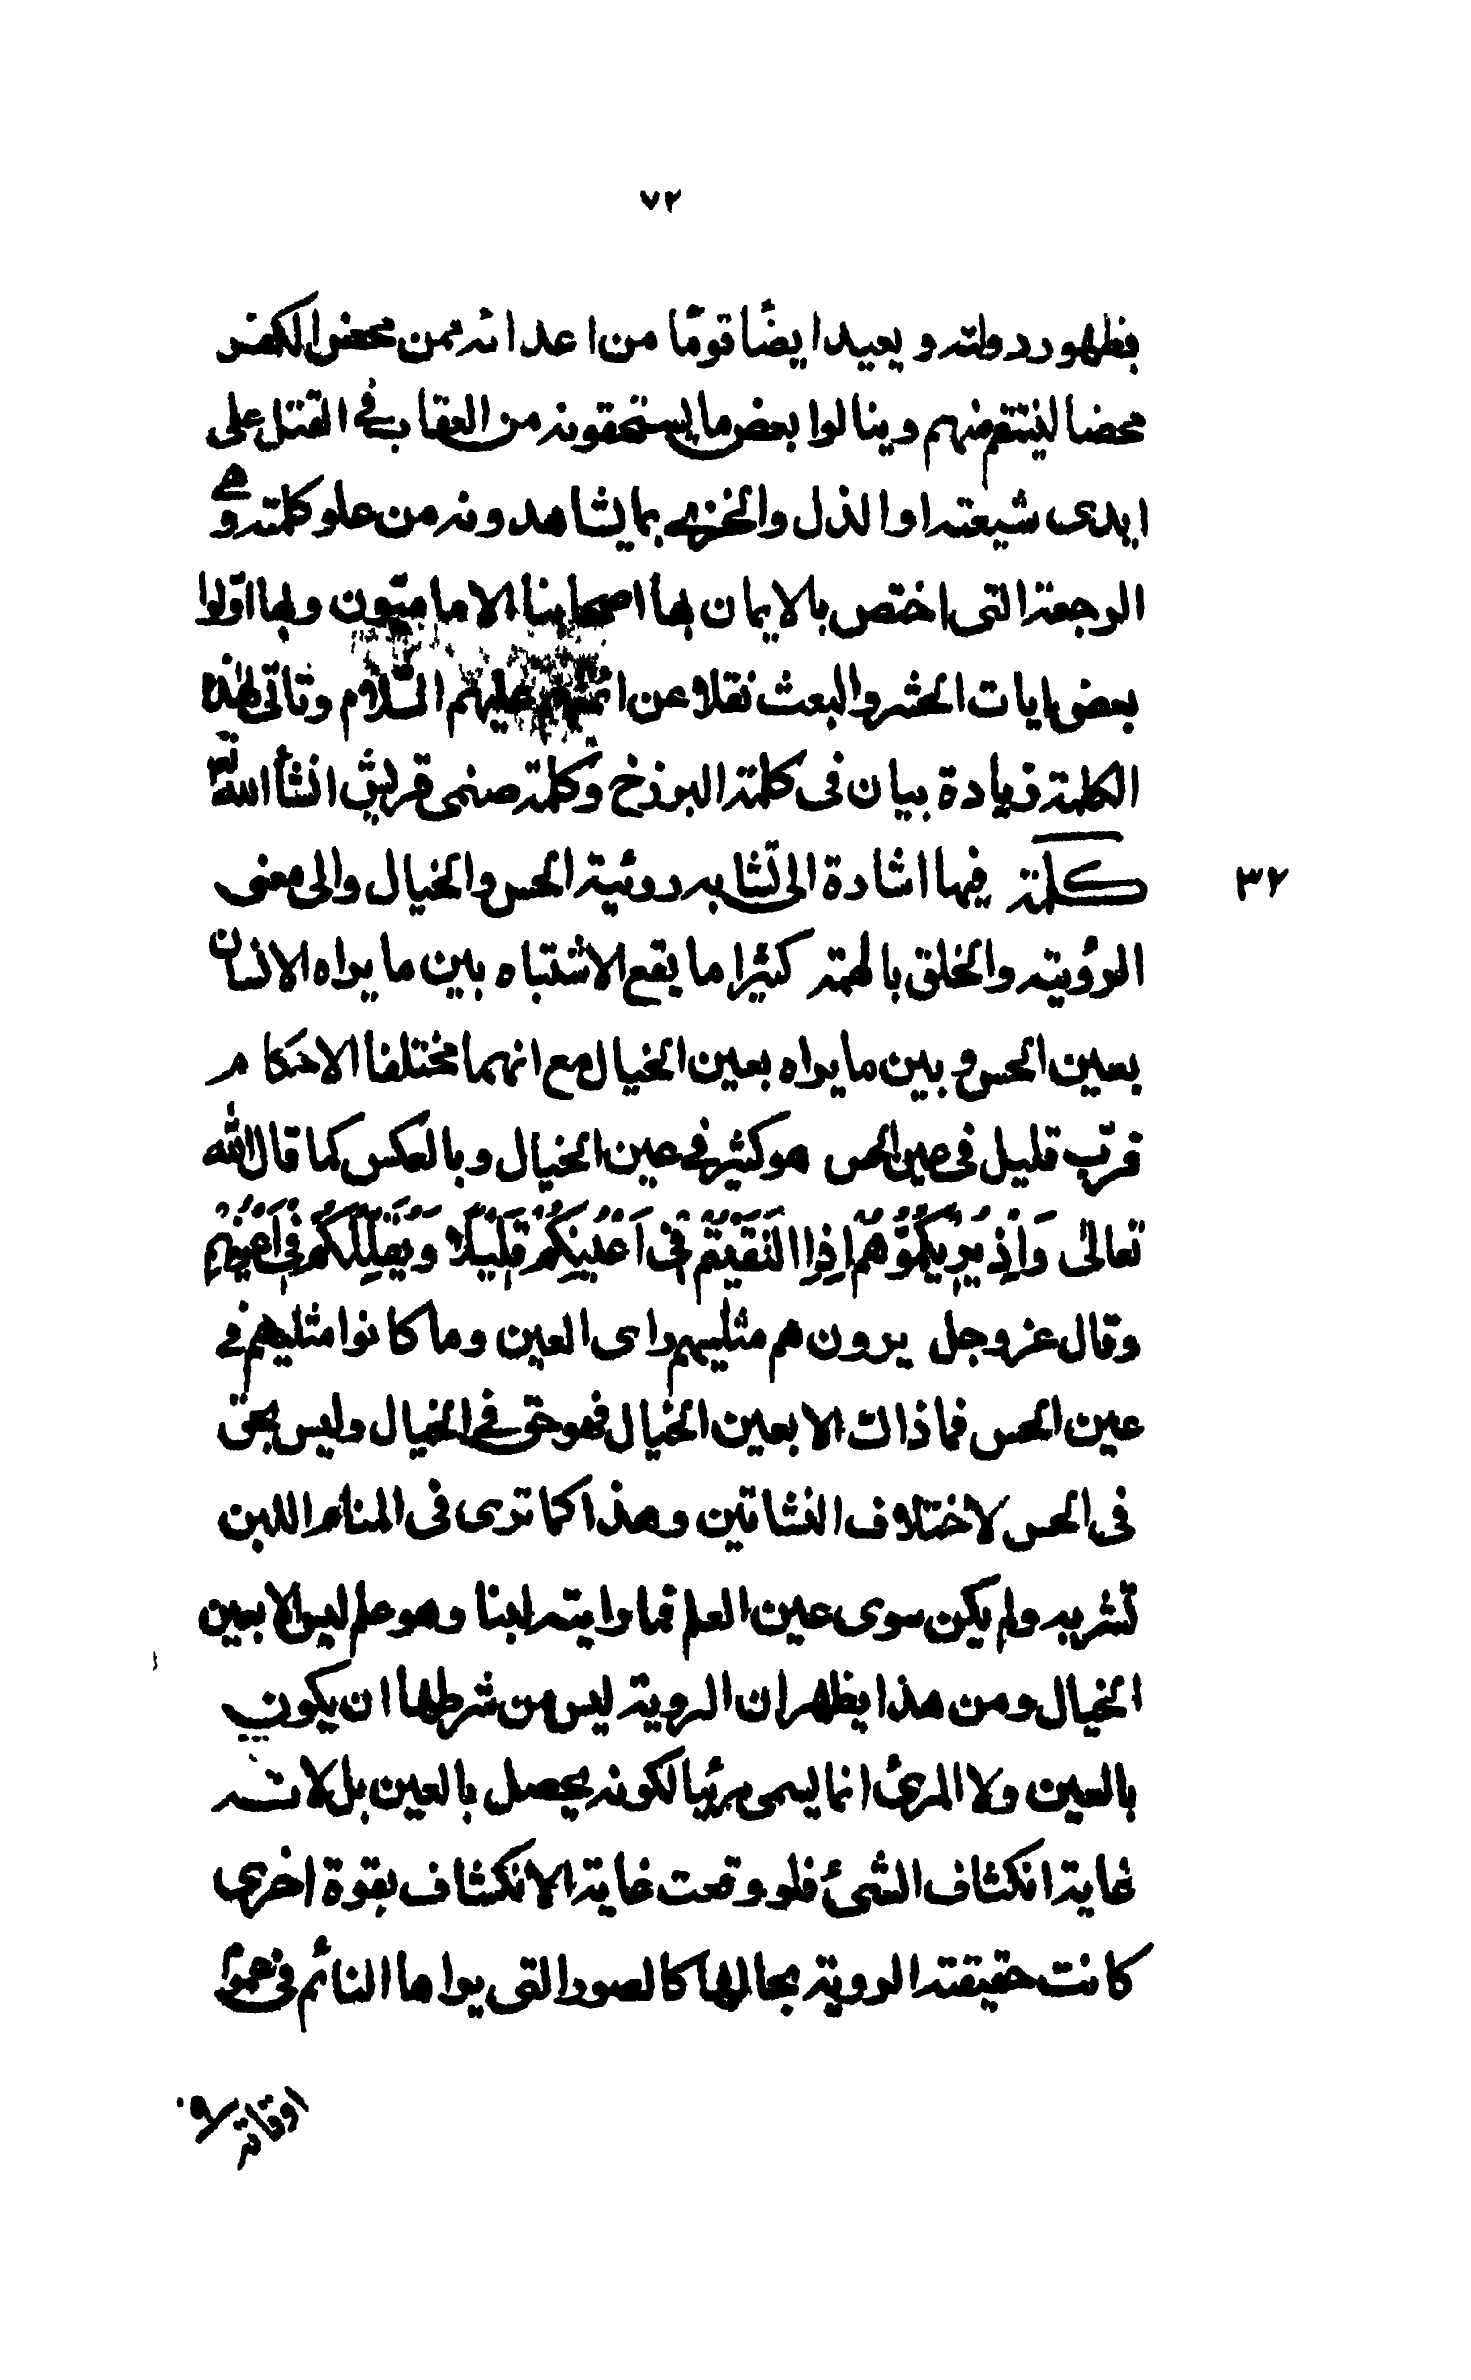 ٧٢
بظهور دولته و يعيد ايضًا قومًا من اعدائه ممن محض الكفر
محضا لينتقم منهم وينالوا بعض ما يستحقونه من العقاب في القتل على
ايدى شيعته او الذل والخزي بما يشاهدونه من علو كلمته وهي
الرجعة التى اختص بالايمان بها اصحابنا الاماميّون وبها اوّلوا
بعض ايات الحشر والبعث نقلا عن ائمتهم عليهم السّلام وتاتى لهذه
الكلمة زيادة بيان فى كلمة البرزخ وكلمة صنمى قريش انشأ الله تع
٣٢
كلمة فيها اشارة الى تشابه روئية الحس والخيال والى معنى
الرؤية والخلق بالهمة كثيرا ما يقع الاشتباه بين ما يراه الانسان
بعين الحس و بين ما يراه بعين الخيال مع انهما مختلفا الاحكام
فربّ قليل فى عين الحس هو كثير في عين الخيال و بالعكس كما قال الله
تعالى وَاِذْ يُرِيكُمُوهُمْ اِذِ الْتَقَيْتُمْ فى اَعْيُنِكُمْ قَلِيْلًا وَيُقَلِّلُكُمْ فِى اَعْيُنِهِمْ
وقال عز وجل يرونهم مثليهم راى العين وما كانوا مثليهم في
عين الحس فما ذاك الا بعين الخيال فهو حق في الخيال وليس بحق
فى الحس لاختلاف النشاتين وهذا كما ترى فى المنام اللبن
تشربه ولم يكن سوى عين العلم فما رايته لبنا وهو علم ليس الا بعين
الخيال ومن هذا يظهر ان الروية ليس من شرطها ان يكون
بالعين ولا المرئ انما يسمى مرئيا لكونه يحصل بالعين بل لانه
غاية انكشاف الشئ فلو وقعت غاية الانكشاف بقوة اخرى
كانت حقيقة الروية بحالها كالصور التى يراها النائم فى عموا
اوقاته